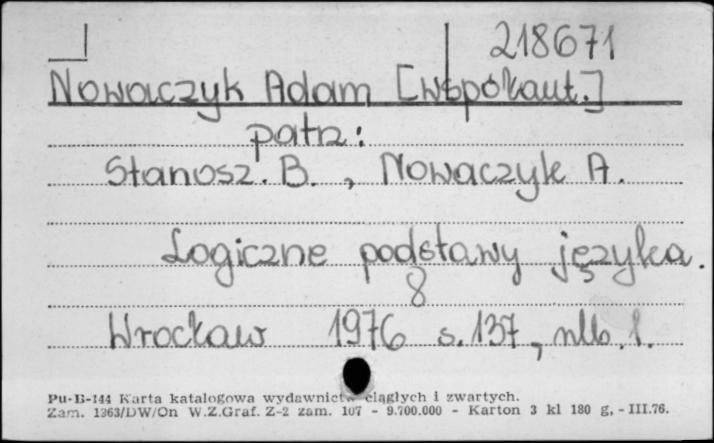 218671
Nowaczyk Adam [współaut.]
patrz:
Stanosz. B., Nowaczyk A.
Logiczne podstawy języka.
8
Wrocław 1976 s. 137, nlb. 1.
Pu-B-144 Karta katalogowa wydawnictw ciągłych i zwartych.
Zam. 1363/DW/On W.Z.Graf. Z-2 zam. 107 - 9.700.000 - Karton 3 kl 180 g, - III.76.